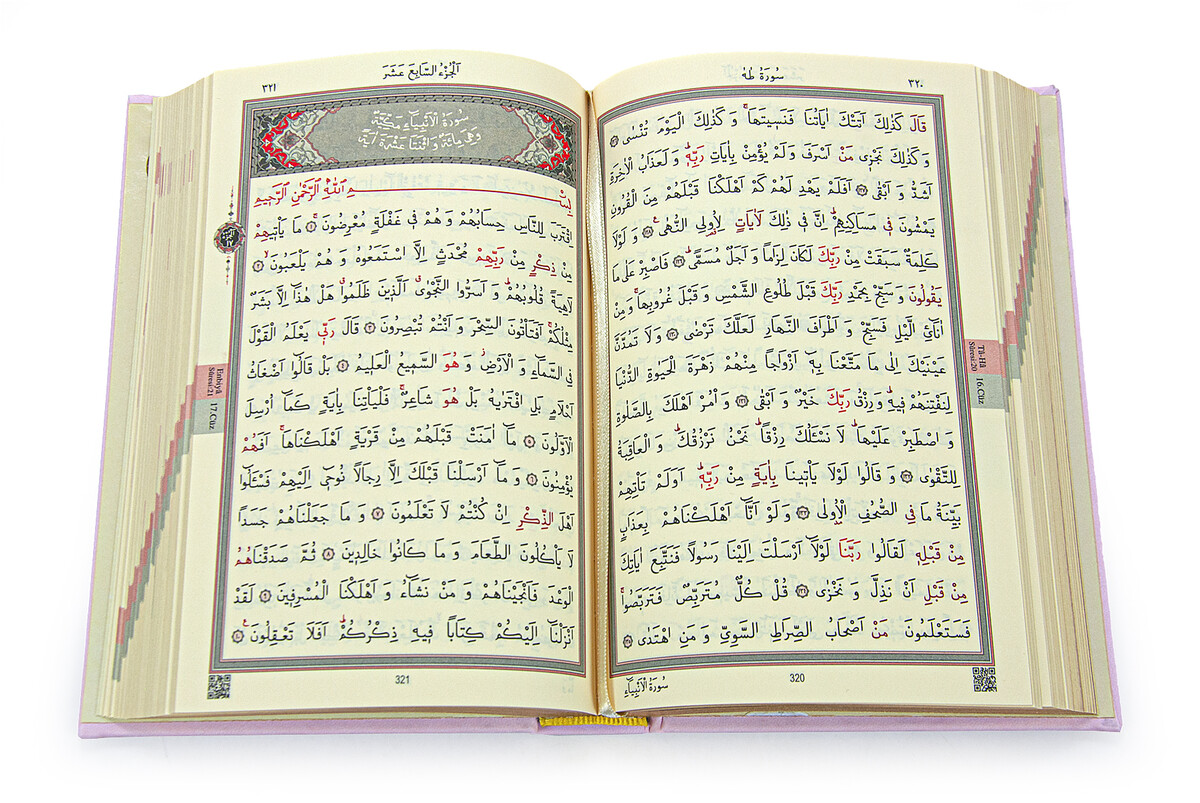 سورة طه
٣٢٠
قَالَ كَذٰلِكَ اَتَتْكَ اٰيَاتُنَا فَنَسٖيتَهَاۚ وَ كَذٰلِكَ الْيَوْمَ تُنْسٰى
وَ كَذٰلِكَ نَجْزٖى مَنْ اَسْرَفَ وَلَمْ يُؤْمِنْ بِاٰيَاتِ رَبِّهٖۜ وَ لَعَذَابُ الْاٰخِرَةِ
اَشَدُّ وَ اَبْقٰى اَفَلَمْ يَهْدِ لَهُمْ كَمْ اَهْلَكْنَا قَبْلَهُمْ مِنَ الْقُرُونِ
يَمْشُونَ فٖى مَسَاكِنِهِمْۜ اِنَّ فٖى ذٰلِكَ لَاٰيَاتٍ لِاُولِى النُّهٰىۚ وَ لَوْلَا
كَلِمَةٌ سَبَقَتْ مِنْ رَبِّكَ لَكَانَ لِزَاماً وَ اَجَلٌ مُسَمًّىۜ فَاصْبِرْ عَلٰى مَا
يَقُولُونَ وَ سَبِّحْ بِحَمْدِ رَبِّكَ قَبْلَ طُلُوعِ الشَّمْسِ وَ قَبْلَ غُرُوبِهَاۚ وَ مِنْ
اٰنَائِ الَّيْلِ فَسَبِّحْ وَ اَطْرَافَ النَّهَارِ لَعَلَّكَ تَرْضٰى وَ لَا تَمُدَّنَّ
عَيْنَيْكَ اِلٰى مَا مَتَّعْنَا بِهٖٓ اَزْوَاجاً مِنْهُمْ زَهْرَةَ الْحَيٰوةِ الدُّنْيَا
لِنَفْتِنَهُمْ فٖيهِۜ وَ رِزْقُ رَبِّكَ خَيْرٌ وَ اَبْقٰى وَ اْمُرْ اَهْلَكَ بِالصَّلٰوةِ
وَ اصْطَبِرْ عَلَيْهَاۜ لَا نَسْئَلُكَ رِزْقاًۜ نَحْنُ نَرْزُقُكَۜ وَ الْعَاقِبَةُ
لِلتَّقْوٰى وَ قَالُوا لَوْلَا يَاْتٖينَا بِاٰيَةٍ مِنْ رَبِّهٖۜ اَوَلَمْ تَاْتِهِمْ
بَيِّنَةُ مَا فِى الصُّحُفِ الْاُولٰى وَ لَوْ اَنَّٓا اَهْلَكْنَاهُمْ بِعَذَابٍ
مِنْ قَبْلِهٖ لَقَالُوا رَبَّنَا لَوْلَٓا اَرْسَلْتَ اِلَيْنَا رَسُولاً فَنَتَّبِعَ اٰيَاتِكَ
مِنْ قَبْلِ اَنْ نَذِلَّ وَ نَخْزٰى قُلْ كُلٌّ مُتَرَبِّصٌ فَتَرَبَّصُواۚ
فَسَتَعْلَمُونَ مَنْ اَصْحَابُ الصِّرَاطِ السَّوِىِّ وَ مَنِ اهْتَدٰى
320
سُورَةُ الْاَنْبِيَاءِ
Tâ-Hâ
Sûresi:20
16.Cüz
اَلْجُزْءُ السَّابِعَ عَشَرَ
٣٢١
سُورَةُ الْاَنْبِيَاءِ مَكِّيَّةٌ
وَهِيَ مِائَةٌ وَ اثْنَتَا عَشْرَةَ اٰيَةً
بِسْمِ اللّٰهِ الرَّحْمٰنِ الرَّحٖيمِ
اِقْتَرَبَ لِلنَّاسِ حِسَابُهُمْ وَ هُمْ فٖى غَفْلَةٍ مُعْرِضُونَۚ مَا يَاْتٖيهِمْ
مِنْ ذِكْرٍ مِنْ رَبِّهِمْ مُحْدَثٍ اِلَّا اسْتَمَعُوهُ وَ هُمْ يَلْعَبُونَۙ
لَاهِيَةً قُلُوبُهُمْۜ وَ اَسَرُّوا النَّجْوٰىۗ الَّذٖينَ ظَلَمُواۗ هَلْ هٰذَٓا اِلَّا بَشَرٌ
مِثْلُكُمْۚ اَفَتَاْتُونَ السِّحْرَ وَ اَنْتُمْ تُبْصِرُونَ قَالَ رَبّٖى يَعْلَمُ الْقَوْلَ
فِى السَّمَٓاءِ وَ الْاَرْضِۘ وَ هُوَ السَّمٖيعُ الْعَلٖيمُ بَلْ قَالُٓوا اَضْغَاثُ
اَحْلَامٍ بَلِ افْتَرٰيهُ بَلْ هُوَ شَاعِرٌۚ فَلْيَاْتِنَا بِاٰيَةٍ كَمَٓا اُرْسِلَ
الْاَوَّلُونَ مَٓا اٰمَنَتْ قَبْلَهُمْ مِنْ قَرْيَةٍ اَهْلَكْنَاهَاۚ اَفَهُمْ
يُؤْمِنُونَ وَ مَٓا اَرْسَلْنَا قَبْلَكَ اِلَّا رِجَالاً نُوحٖٓى اِلَيْهِمْ فَسْئَلُٓوا
اَهْلَ الذِّكْرِ اِنْ كُنْتُمْ لَا تَعْلَمُونَ وَ مَا جَعَلْنَاهُمْ جَسَداً
لَا يَاْكُلُونَ الطَّعَامَ وَ مَا كَانُوا خَالِدٖينَ ثُمَّ صَدَقْنَاهُمُ
الْوَعْدَ فَاَنْجَيْنَاهُمْ وَ مَنْ نَشَٓاءُ وَ اَهْلَكْنَا الْمُسْرِفٖينَ لَقَدْ
اَنْزَلْنَٓا اِلَيْكُمْ كِتَاباً فٖيهِ ذِكْرُكُمْۜ اَفَلَا تَعْقِلُونَ
321
Enbiyâ
Sûresi:21
17.Cüz